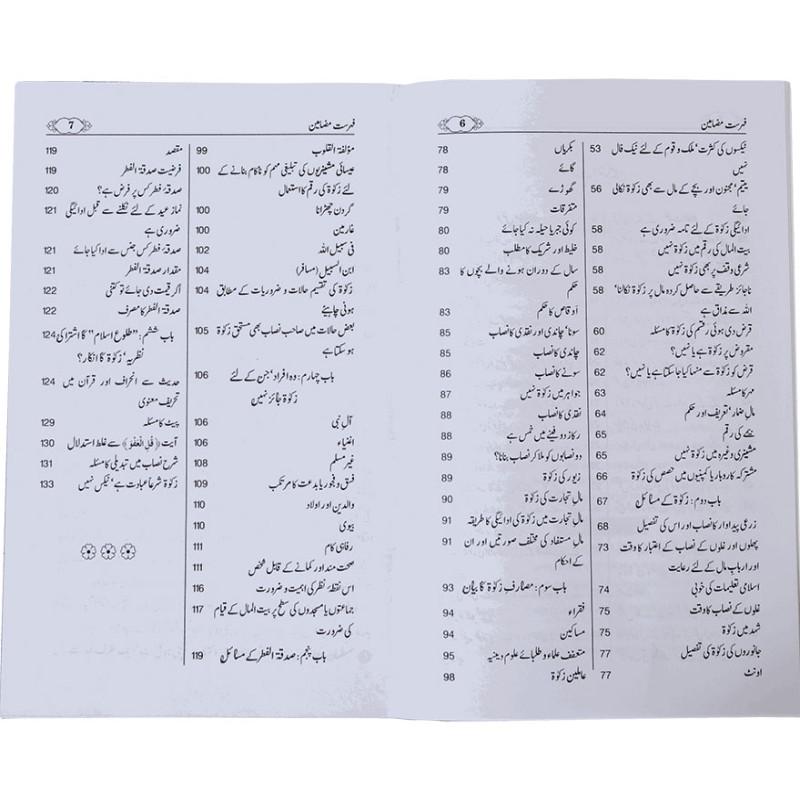 فہرست مضامین 6
ٹیکسوں کی کثرت‘ ملک و قوم کے لئے نیک فال 53
نہیں
یتیم‘ مجنون اور بچے کے مال سے بھی زکوٰۃ نکالی 56
جائے
ادائیگی زکوٰۃ کے لئے نامہ ضروری ہے 58
بیت المال کی رقم میں زکوٰۃ نہیں 58
شرعی وقف پر بھی زکوٰۃ نہیں 58
ناجائز طریقے سے حاصل کردہ مال پر زکوٰۃ نکالنا‘ 58
اللہ سے مذاق ہے
قرض دی ہوئی رقم کی زکوٰۃ کا مسئلہ 60
مقروض پر زکوٰۃ ہے یا نہیں؟ 62
قرض کو زکوٰۃ سے منہا کیا جاسکتا ہے یا نہیں؟ 62
مہر کا مسئلہ 63
مال ضمار‘ تعریف اور حکم 64
کی رقم 65
مشینری وغیرہ میں زکوٰۃ نہیں 65
مشترکہ کاروبار یا کمپنیوں میں حصص کی زکوٰۃ 66
باب دوم: زکوٰۃ کے مسائل 67
زرعی پیداوار کا نصاب اور اس کی تفصیل 68
پھلوں اور غلوں کے نصاب کے اعتبار کا وقت 73
اور ارباب مال کے لئے رعایت
اسلامی تعلیمات کی خوبی 74
غلوں کے نصاب کا وقت 75
شہد میں زکوٰۃ 75
جانوروں کی زکوٰۃ کی تفصیل 77
اونٹ 77
بکریاں 78
گائے 78
گھوڑے 79
متفرقات 79
کوئی جبر یا حیلہ نہ کیا جائے 80
خلیط اور شریک کا مطلب 80
سال کے دوران ہونے والے بچوں کا 83
حکم
أوقاص کا حکم 83
سونا‘ چاندی اور نقدی کا نصاب 85
چاندی کا نصاب 85
سونے کا نصاب 86
جواہر میں زکوٰۃ نہیں 87
نقدی کا نصاب 88
رکاز و دفینے میں خمس ہے 88
دو نصابوں کو ملا کر نصاب بنانا؟ 89
زیور کی زکوٰۃ 89
مال تجارت کی زکوٰۃ 90
مال تجارت میں زکوٰۃ کی ادائیگی کا طریقہ 91
مال مستفاد کی مختلف صورتیں اور ان 91
کے احکام
باب سوم: مصارف زکوٰۃ کا بیان 93
فقراء 94
مساکین 94
متعفف علماء و طلبائے علوم دینیہ 95
عاملین زکوٰۃ 98
فہرست مضامین 7
مؤلفۃ القلوب 99
عیسائی مشنریوں کی تبلیغی مہم کو ناکام بنانے کے 100
لئے زکوٰۃ کی رقم کا استعمال
گردن چھڑانا 100
غارمین 100
فی سبیل اللہ 102
ابن السبیل (مسافر) 104
زکوٰۃ کی تقسیم حالات و ضروریات کے مطابق 104
ہونی چاہیئے
بعض حالات میں صاحب نصاب بھی مستحق زکوٰۃ 105
ہو سکتا ہے
باب چہارم: وہ افراد‘ جن کے لئے 106
زکوٰۃ جائز نہیں
آل نبی 106
اغنیاء 106
غیر مسلم 108
فسق و فجور یا بدعت کا مرتکب 109
والدین اور اولاد 110
بیوی 110
رفاہی کام 111
صحت مند اور کمانے کے قابل شخص 111
اس نقطۂ نظر کی اہمیت و ضرورت 116
جماعتوں یا مسجدوں کی سطح پر بیت المال کے قیام 117
کی ضرورت
باب پنجم: صدقۃ الفطر کے مسائل 119
مقصد 119
فرضیت صدقۃ الفطر 119
صدقۂ فطر کس پر فرض ہے؟ 120
نماز عید کے لئے نکلنے سے قبل ادائیگی 121
ضروری ہے
صدقۂ فطر کس جنس سے ادا کیا جائے 121
مقدار صدقۃ الفطر 121
اگر قیمت دی جائے تو کتنی 122
صدقۃ الفطر کا مصرف 122
باب ششم: ”طلوع اسلام“ کا اشتراکی 124
نظریہ‘ زکوٰۃ کا انکار؟
حدیث سے انحراف اور قرآن میں 124
تحریف معنوی
پیٹ کا مسئلہ 129
آیت ﴿قُلِ الْعَفْوَ﴾ سے غلط استدلال 130
شرح نصاب میں تبدیلی کا مسئلہ 131
زکوٰۃ شرعاً عبادت ہے‘ ٹیکس نہیں 133